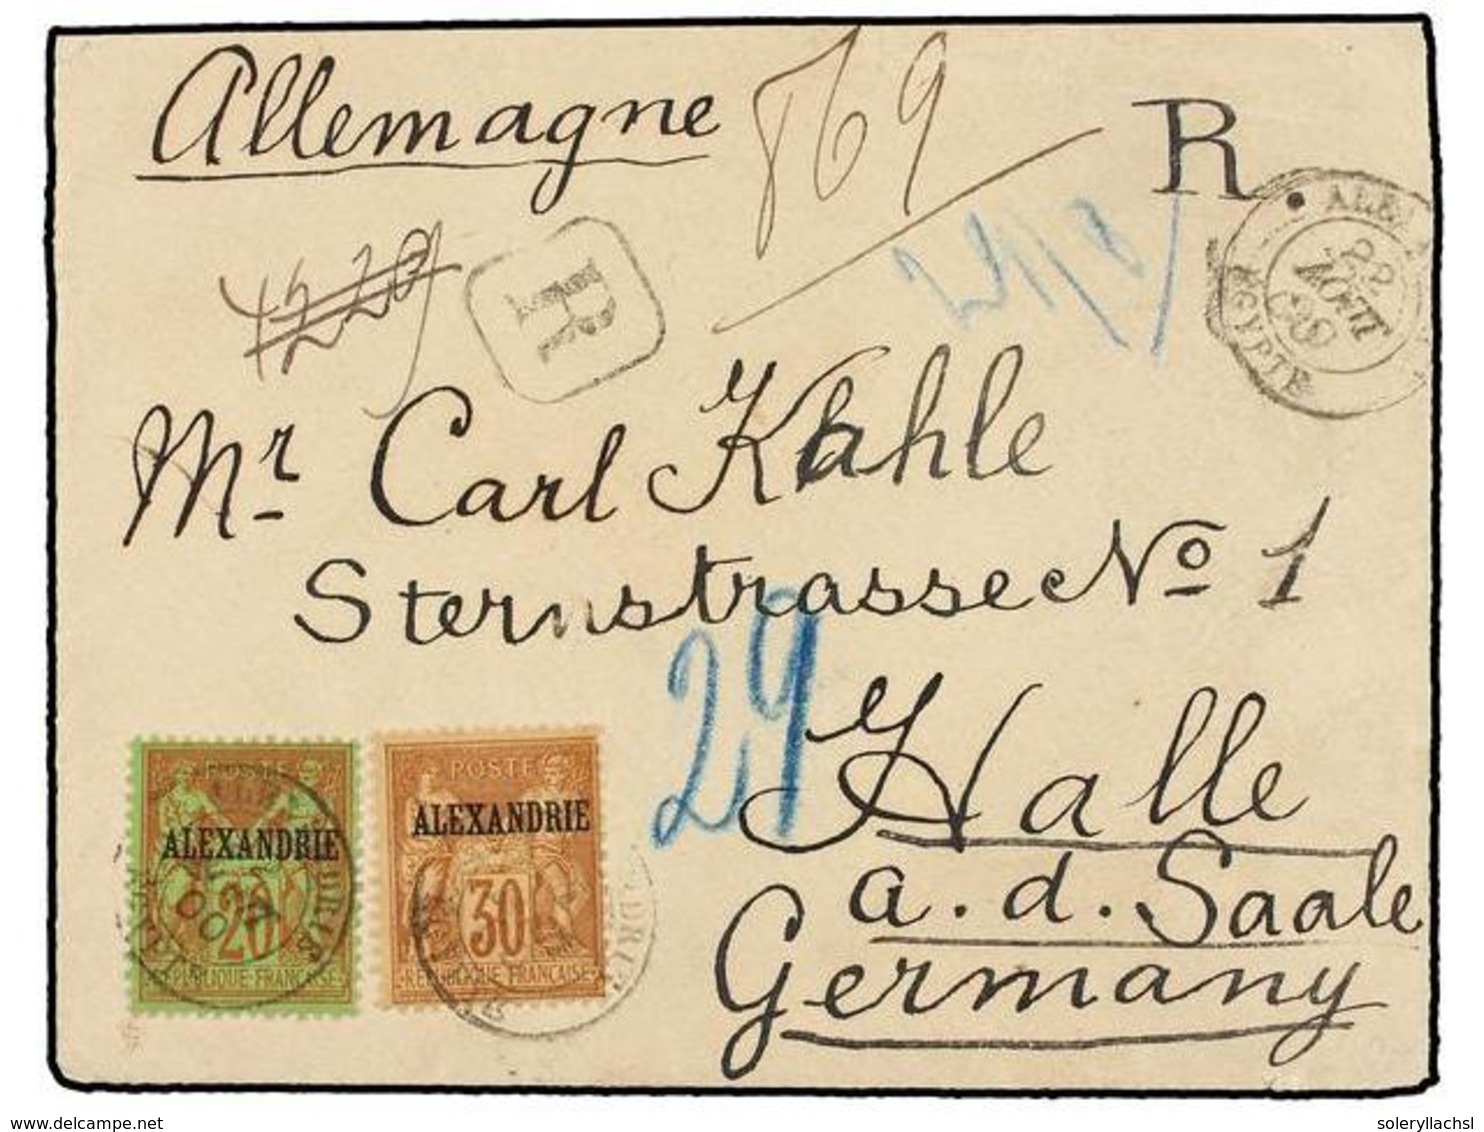 Allemagne
869
R
1229
R
24/8
ALEX
22
AOUT
00
EGYPTE
Mr Carl Kahle
Sternstrasse No 1
29
Halle
a.d. Saale
Germany
POSTE
ALEXANDRIE
20
REPUBLIQUE FRANÇAISE
POSTE
ALEXANDRIE
30
REPUBLIQUE FRANÇAISE
www.delcampe.net
soleryllachsl